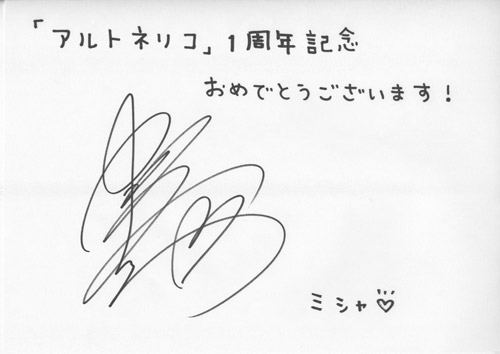 「アルトネリコ」1周年記念
おめでとうございます！
ミシャ♡